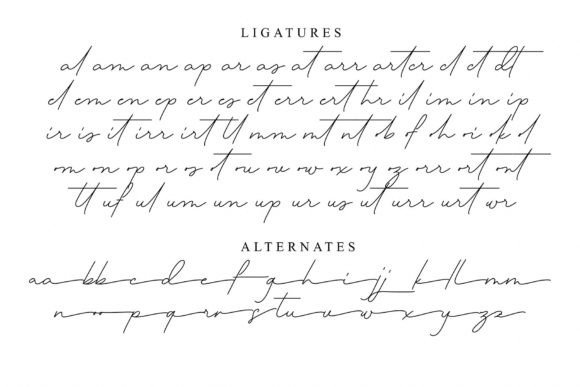 LIGATURES
al am an ap ar as at arr arter cl ct dt
el em en ep er es et err ert hr il im in ip
ir is it irr irt ll mm mt nt ob of oh oi ok ol
om on op or os ot ou ov ow ox oy oz orr ort ont
tt uf ul um un up ur us ut urr urt wr
ALTERNATES
a a b b c d e f g h i j j k l l m m
n o o p q r s t u v w x y z s